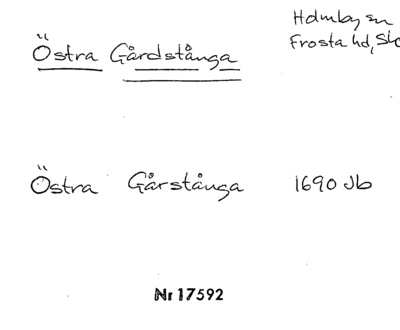 Holmby sn
Östra Gårdstånga
Frosta hd, Sk
Östra Gårstånga 1690 Jb
Nr 17592